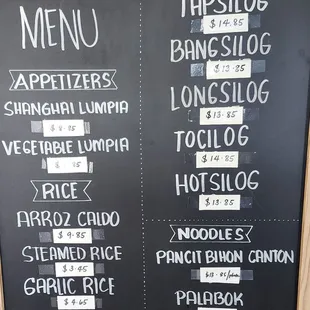 MENU
APPETIZERS
SHANGHAI LUMPIA
VEGETABLE LUMPIA
RICE
ARROZ CALDO
$ 9.85
STEAMED RICE
$ 3.45
GARLIC RICE
$ 4.65
TAPSILOG
$ 14.85
BANGSILOG
$ 13.85
LONGSILOG
$ 13.85
TOCILOG
$ 14.85
HOTSILOG
$ 13.85
NOODLES
PANCIT BIHON CANTON
PALABOK